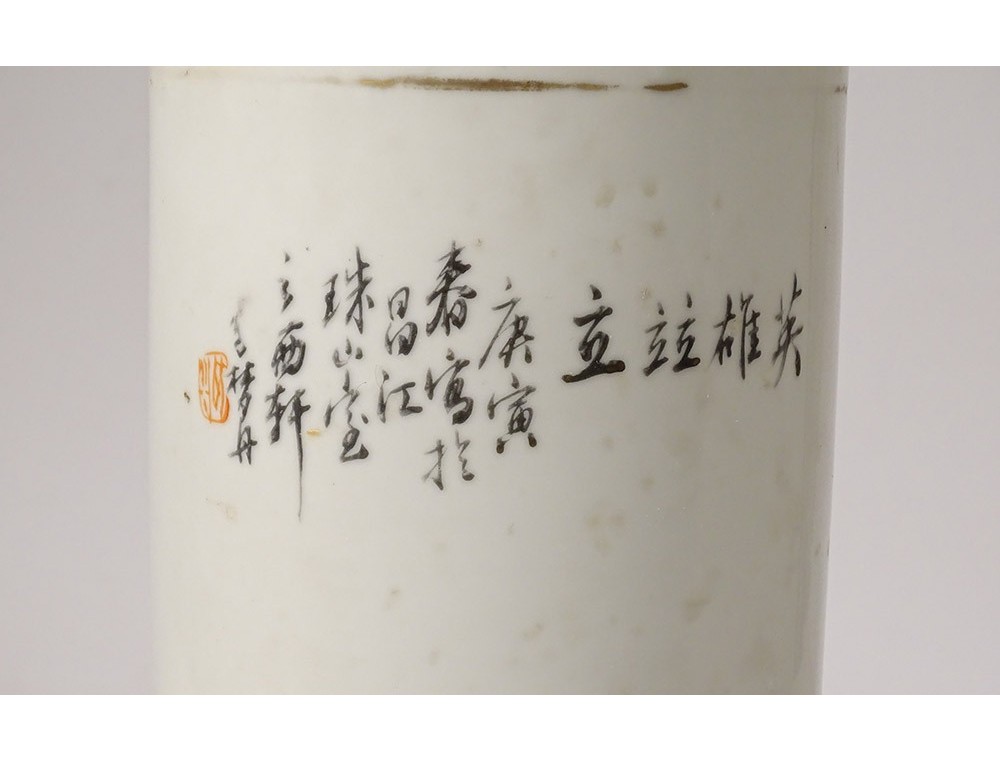 英雄竝立
庚寅
春寫於
昌江
珠山室
之西軒
夢丹